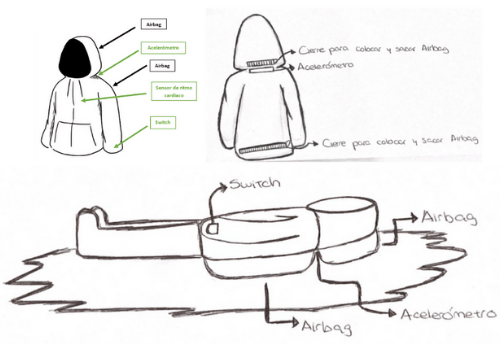 Airbag
Acelerómetro
Airbag
Sensor de ritmo
cardiaco
Switch
Cierre para colocar y sacar Airbag
Acelerómetro
Cierre para colocar y sacar Airbag
Switch
Airbag
Acelerómetro
Airbag